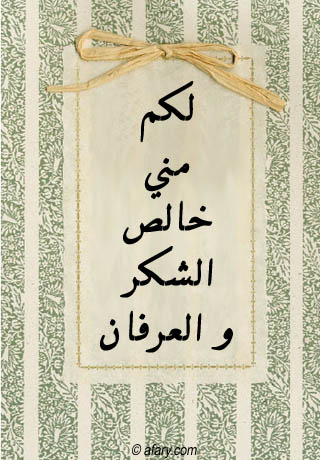 لكم
مني
خالص
الشكر
و العرفان
© afary.com